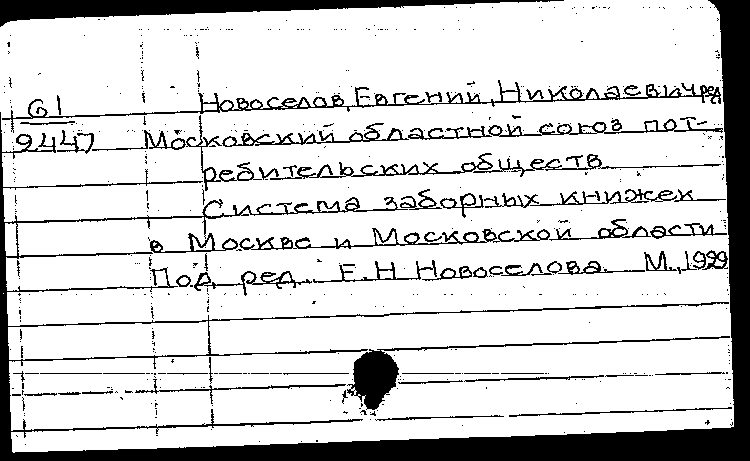 61
9447
Новоселов, Евгений, Николаевич ред
Московский областной союз пот-
ребительских обществ
Система заборных книжек
в Москве и Московской области
Под ред. Е.Н Новоселова. М., 1929